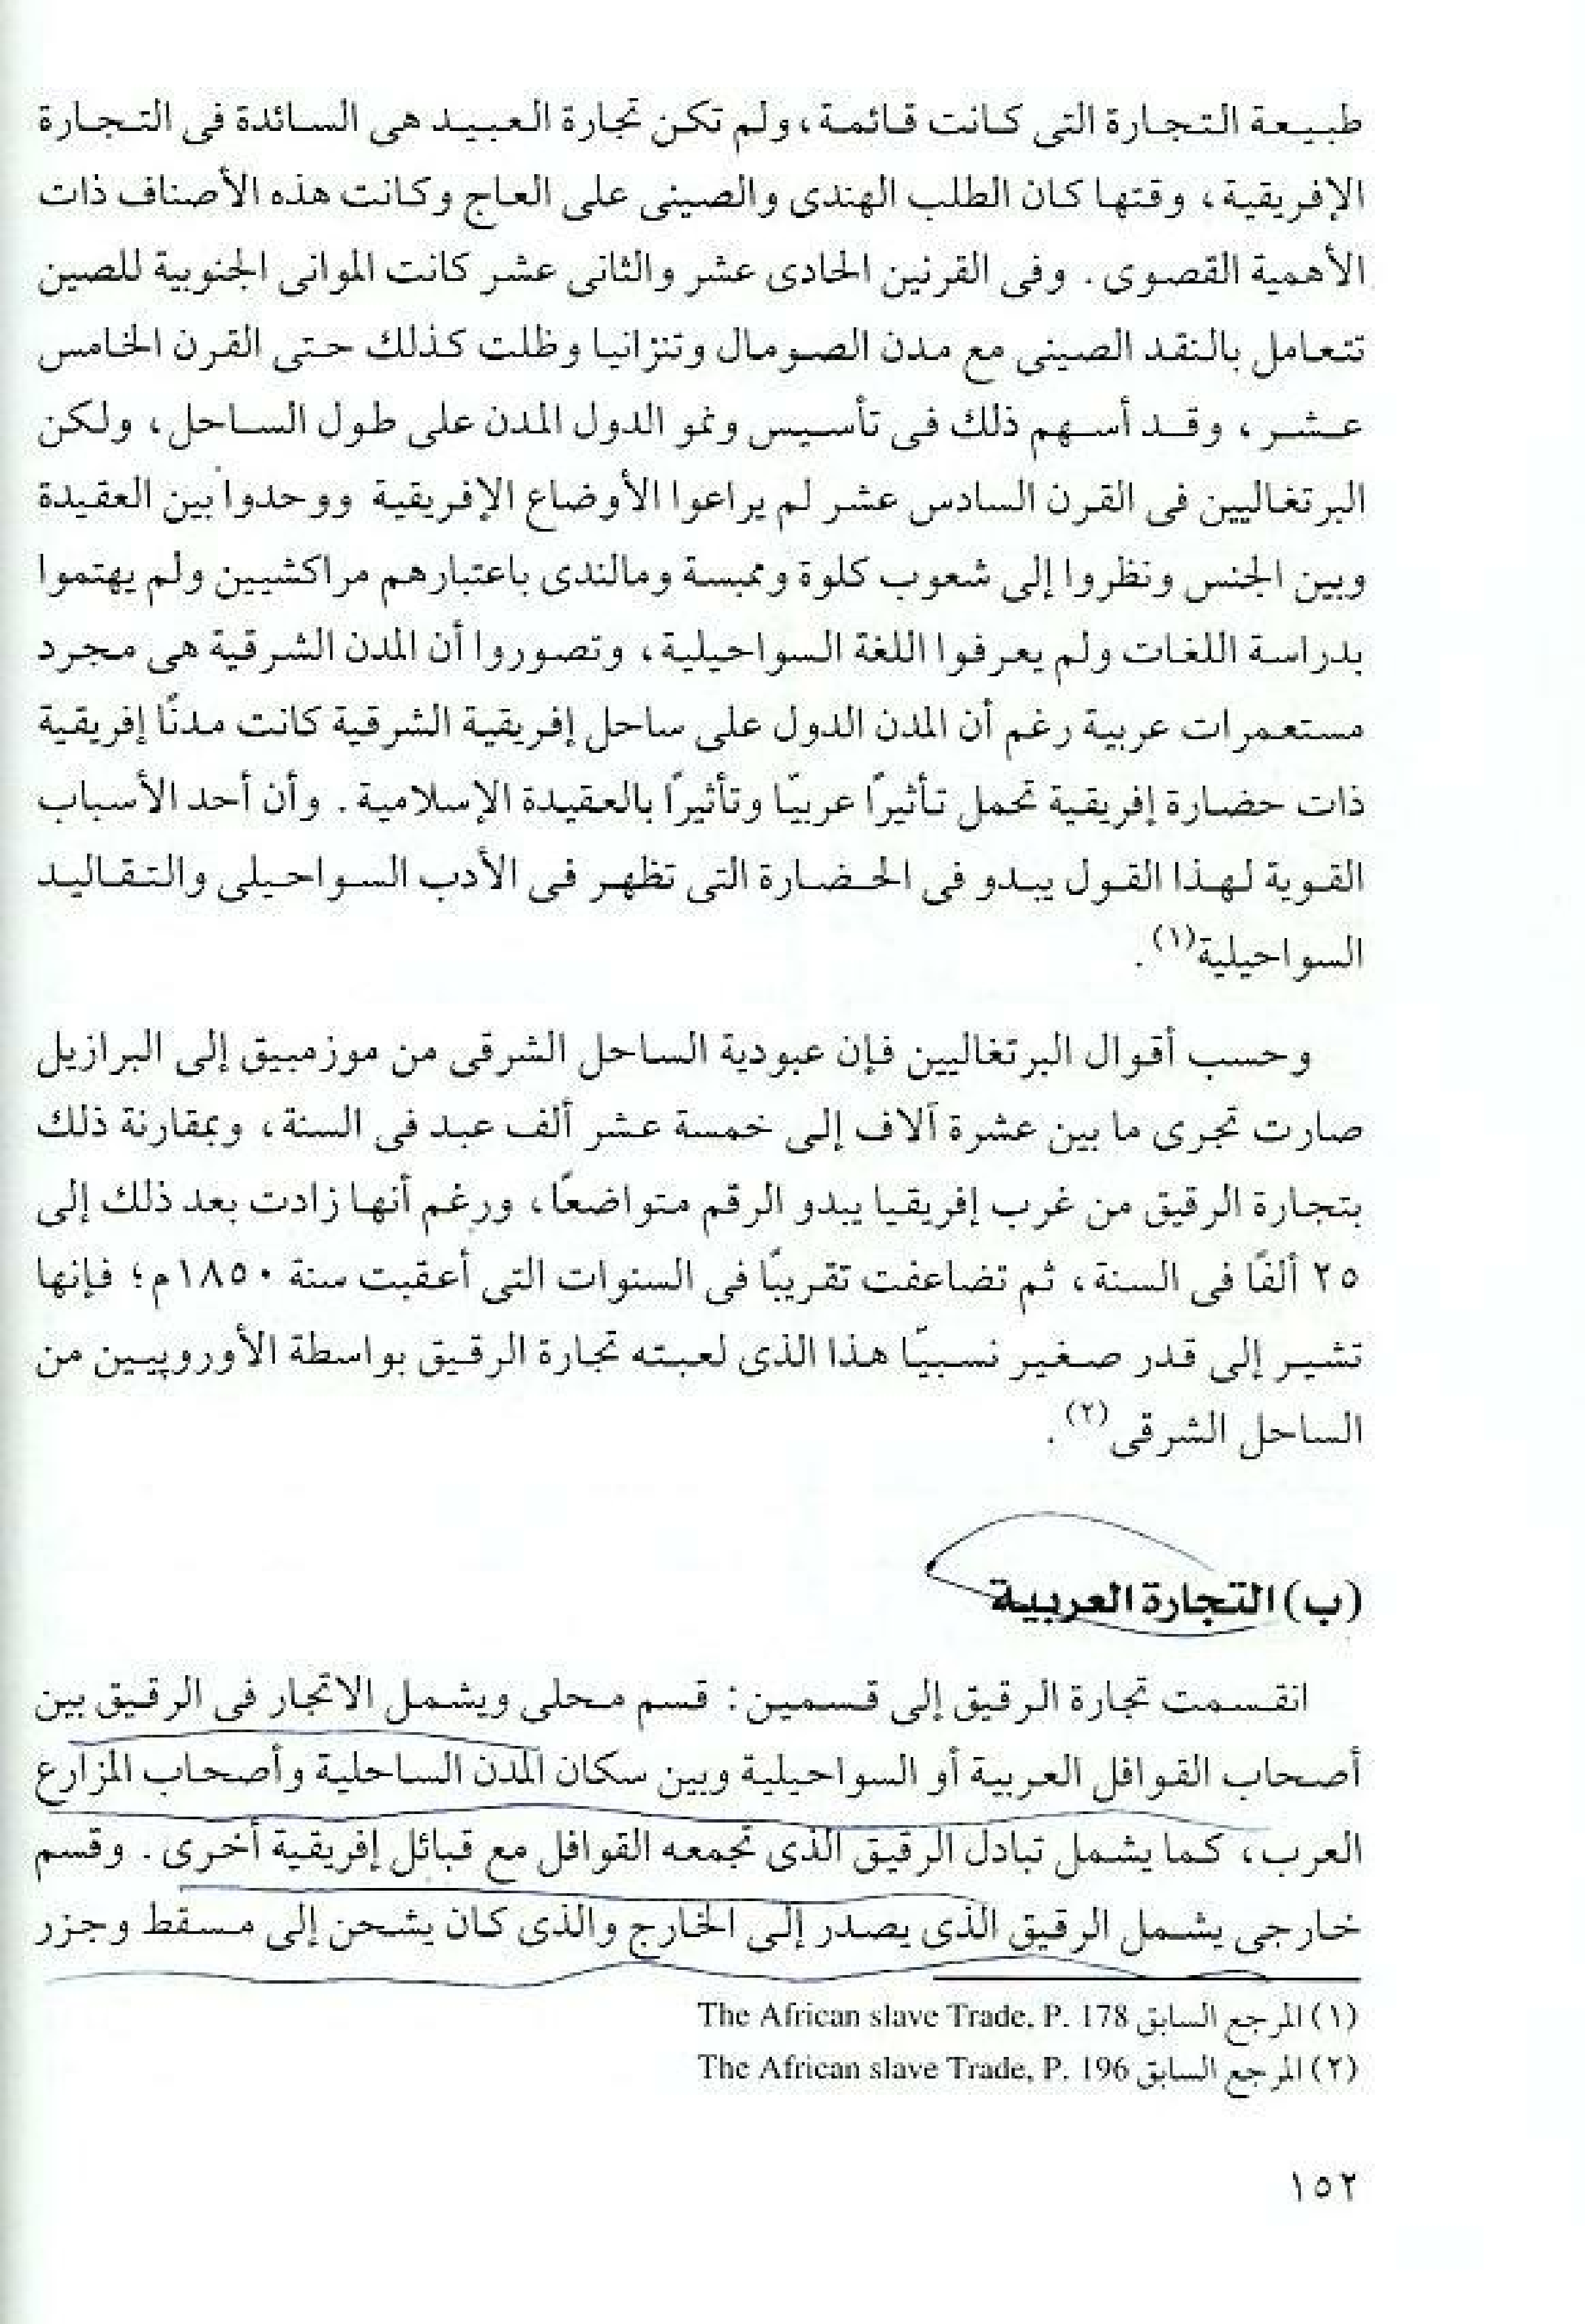 طبيعة التجارة التى كانت قائمة، ولم تكن تجارة العبيد هى السائدة فى التجارة
الإفريقية، وقتها كان الطلب الهندى والصينى على العاج وكانت هذه الأصناف ذات
الأهمية القصوى. وفى القرنين الحادى عشر والثانى عشر كانت الموانى الجنوبية للصين
تتعامل بالنقد الصينى مع مدن الصومال وتنزانيا وظلت كذلك حتى القرن الخامس
عشر، وقد أسهم ذلك فى تأسيس ونمو الدول المدن على طول الساحل، ولكن
البرتغاليين فى القرن السادس عشر لم يراعوا الأوضاع الإفريقية ووحدوا بين العقيدة
وبين الجنس ونظروا إلى شعوب كلوة وممبسة ومالندى باعتبارهم مراكشيين ولم يهتموا
بدراسة اللغات ولم يعرفوا اللغة السواحيلية، وتصوروا أن المدن الشرقية هى مجرد
مستعمرات عربية رغم أن المدن الدول على ساحل إفريقية الشرقية كانت مدنًا إفريقية
ذات حضارة إفريقية تحمل تأثيرًا عربيًا وتأثيرًا بالعقيدة الإسلامية. وأن أحد الأسباب
القوية لهذا القول يبدو فى الحضارة التى تظهر فى الأدب السواحيلى والتقاليد
السواحيلية(١).
وحسب أقوال البرتغاليين فإن عبودية الساحل الشرقى من موزمبيق إلى البرازيل
صارت تجرى ما بين عشرة آلاف إلى خمسة عشر ألف عبد فى السنة، وبمقارنة ذلك
بتجارة الرقيق من غرب إفريقيا يبدو الرقم متواضعًا، ورغم أنها زادت بعد ذلك إلى
٢٥ ألفًا فى السنة، ثم تضاعفت تقريبًا فى السنوات التى أعقبت سنة ١٨٥٠م؛ فإنها
تشير إلى قدر صغير نسبيًا هذا الذى لعبته تجارة الرقيق بواسطة الأوروپيين من
الساحل الشرقى(٢).
(ب) التجارة العربية
انقسمت تجارة الرقيق إلى قسمين: قسم محلى ويشمل الاتجار فى الرقيق بين
أصحاب القوافل العربية أو السواحيلية وبين سكان المدن الساحلية وأصحاب المزارع
العرب، كما يشمل تبادل الرقيق الذى تجمعه القوافل مع قبائل إفريقية أخرى. وقسم
خارجى يشمل الرقيق الذى يصدر إلى الخارج والذى كان يشحن إلى مسقط وجزر
(١) المرجع السابق The African slave Trade, P. 178
(٢) المرجع السابق The African slave Trade, P. 196
١٥٢